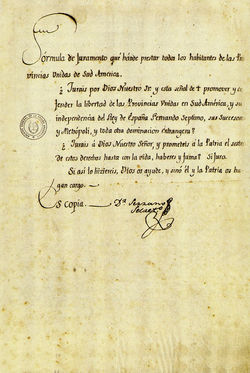 Fórmula de Juramento qué hande prestar todos los habitantes de las Pro
vincias Unidas de Sud America.
¿ Jurais por Dios Nuestro Sr. y esta señal de † promover y de
fender la libertad de las Provincias Unidas en Sud América, y su
independencia del Rey de España Fernando Septimo, sus Sucesores
y Metrópoli, y toda otra dominacion extrangera?
¿ Jurais á Dios Nuestro Señor, y prometeis á la Patria el sosten
de estos derechos hasta con la vida, haberes y fama? Si Juro.
Si asi lo hiziereis, Dios os ayude, y sinó él y la Patria os ha
gan cargo.
Es copia.
Dr. Serrano